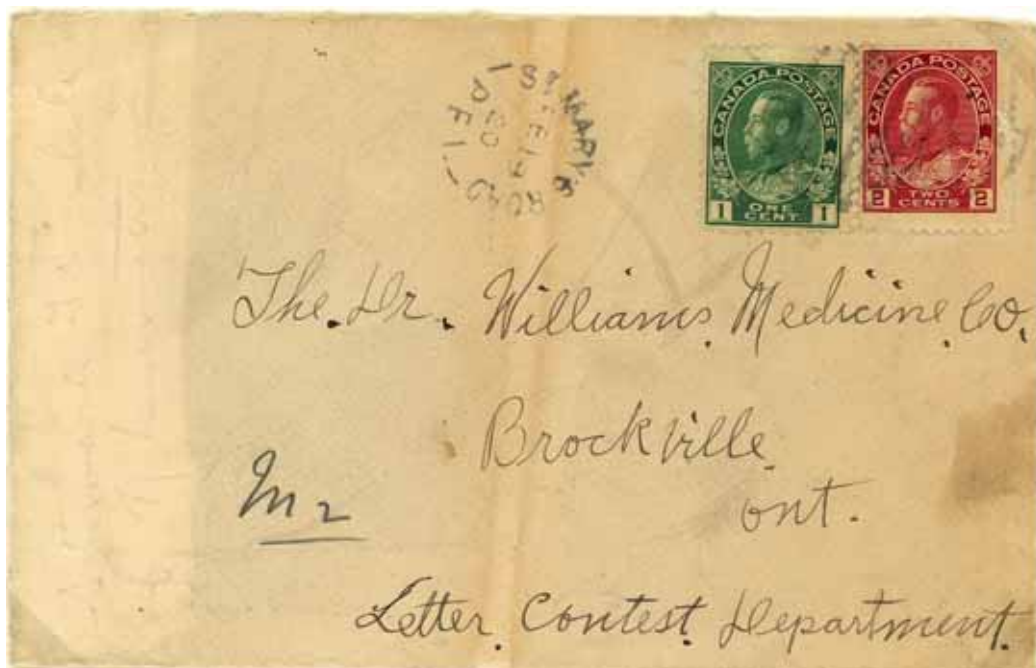 ST. MARY'S
FE 19
20
P E I
CANADA POSTAGE
1 ONE CENT 1
CANADA POSTAGE
2 TWO CENTS 2
The. Dr. Williams. Medicine. Co.
Brockville.
ont.
Letter. Contest. Department.